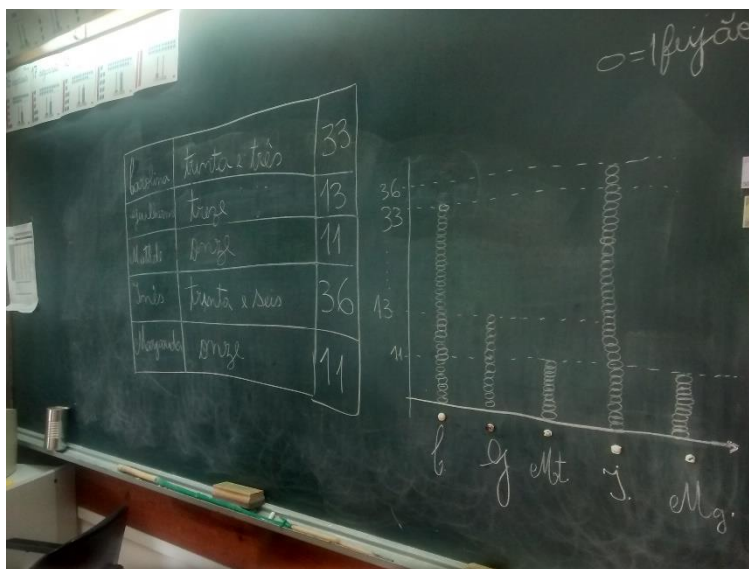 o=1 feijão
Carolina trinta e três 33
Guilherme treze 13
Matilde onze 11
Inês trinta e seis 36
Margarida onze 11
36
33
13
11
C G Mt J. Mg.